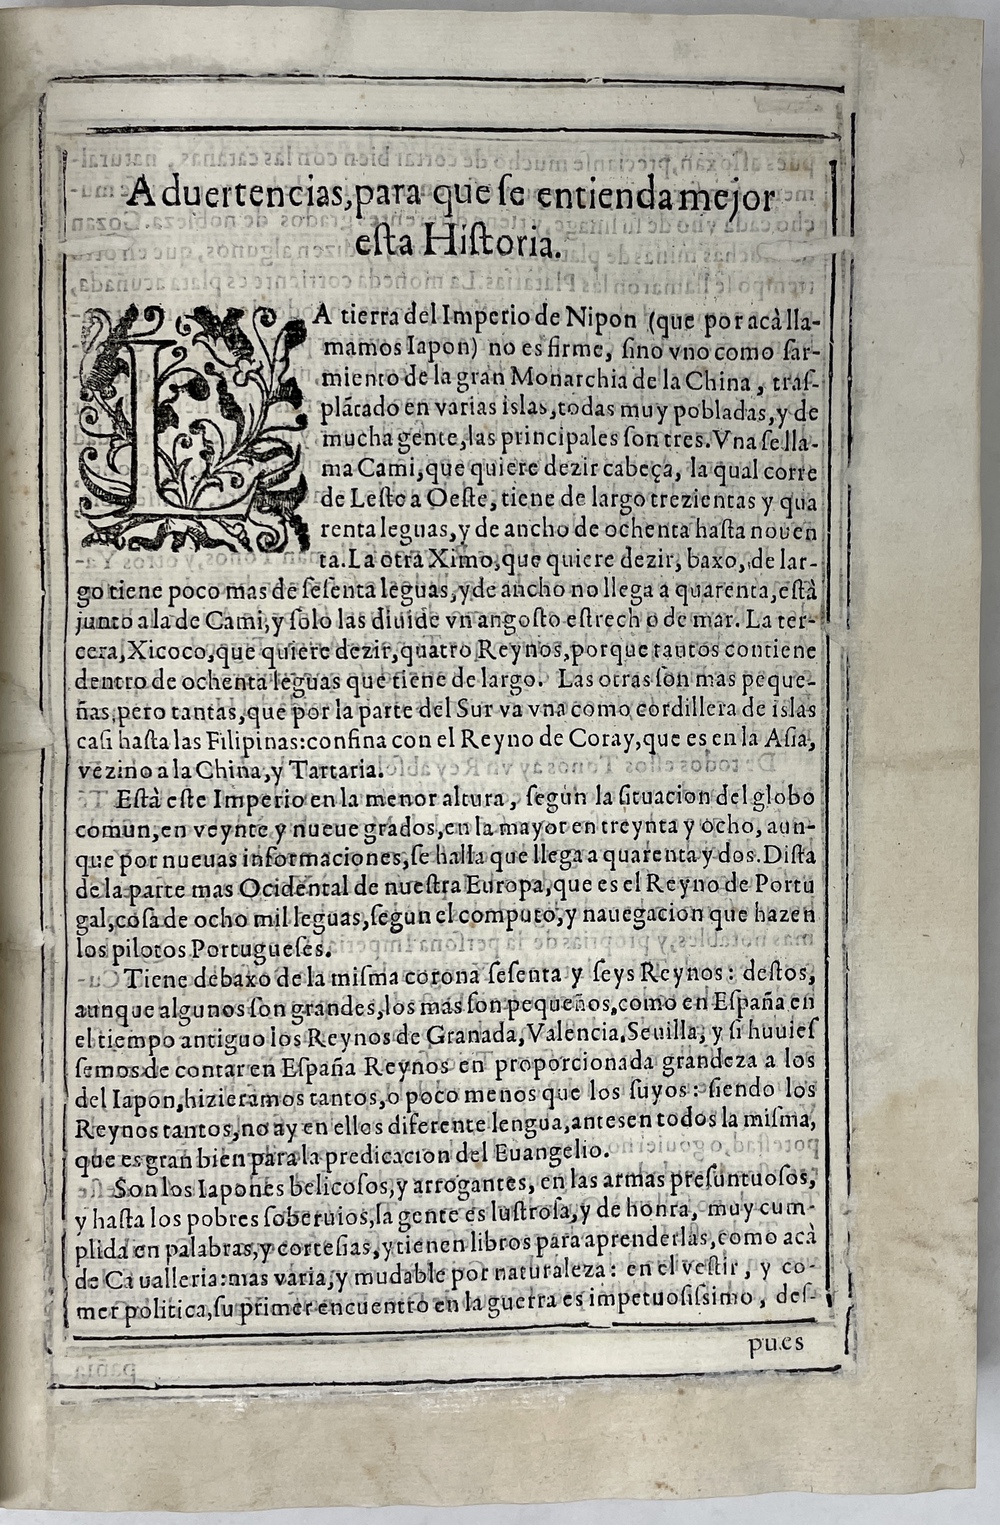 Aduertencias, para que ſe entienda mejor
eſta Hiſtoria.
LA tierra del Imperio de Nipon (que por acà lla-
mamos Iapon) no es firme, ſino vno como ſar-
miento de la gran Monarchia de la China, traſ-
plãtado en varias islas, todas muy pobladas, y de
mucha gente, las principales ſon tres. Vna ſe lla-
ma Cami, que quiere dezir cabeça, la qual corre
de Leſte a Oeſte, tiene de largo trezientas y qua
renta leguas, y de ancho de ochenta haſta nouen
ta. La otra Ximo, que quiere dezir, baxo, de lar-
go tiene poco mas de ſeſenta leguas, y de ancho no llega a quarenta, eſtà
junto a la de Cami, y ſolo las diuide vn angoſto eſtrecho de mar. La ter-
cera, Xicoco, que quiere dezir, quatro Reynos, porque tantos contiene
dentro de ochenta leguas que tiene de largo. Las otras ſon mas peque-
ñas, pero tantas, que por la parte del Sur va vna como cordillera de islas
caſi haſta las Filipinas: confina con el Reyno de Coray, que es en la Aſia,
vezino a la China, y Tartaria.
Eſtà eſte Imperio en la menor altura, ſegun la ſituacion del globo
comun, en veynte y nueue grados, en la mayor en treynta y ocho, aun-
que por nueuas informaciones, ſe halla que llega a quarenta y dos. Diſta
de la parte mas Ocidental de nueſtra Europa, que es el Reyno de Portu
gal, coſa de ocho mil leguas, ſegun el computo, y nauegacion que hazen
los pilotos Portugueſes.
Tiene debaxo de la miſma corona ſeſenta y ſeys Reynos: deſtos,
aunque algunos ſon grandes, los mas ſon pequeños, como en Eſpaña en
el tiempo antiguo los Reynos de Granada, Valencia, Seuilla, y ſi huuieſ
ſemos de contar en Eſpaña Reynos en proporcionada grandeza a los
del Iapon, hizieramos tantos, o poco menos que los ſuyos: ſiendo los
Reynos tantos, no ay en ellos diferente lengua, antes en todos la miſma,
que es gran bien para la predicacion del Euangelio.
Son los Iapones belicoſos, y arrogantes, en las armas preſuntuoſos,
y haſta los pobres ſoberuios, la gente es luſtroſa, y de honra, muy cum-
plida en palabras, y corteſias, y tienen libros para aprenderlas, como acà
de Caualleria: mas varia, y mudable por naturaleza: en el veſtir, y co-
mer politica, ſu primer encuentro en la guerra es impetuoſiſsimo, deſ-
pues